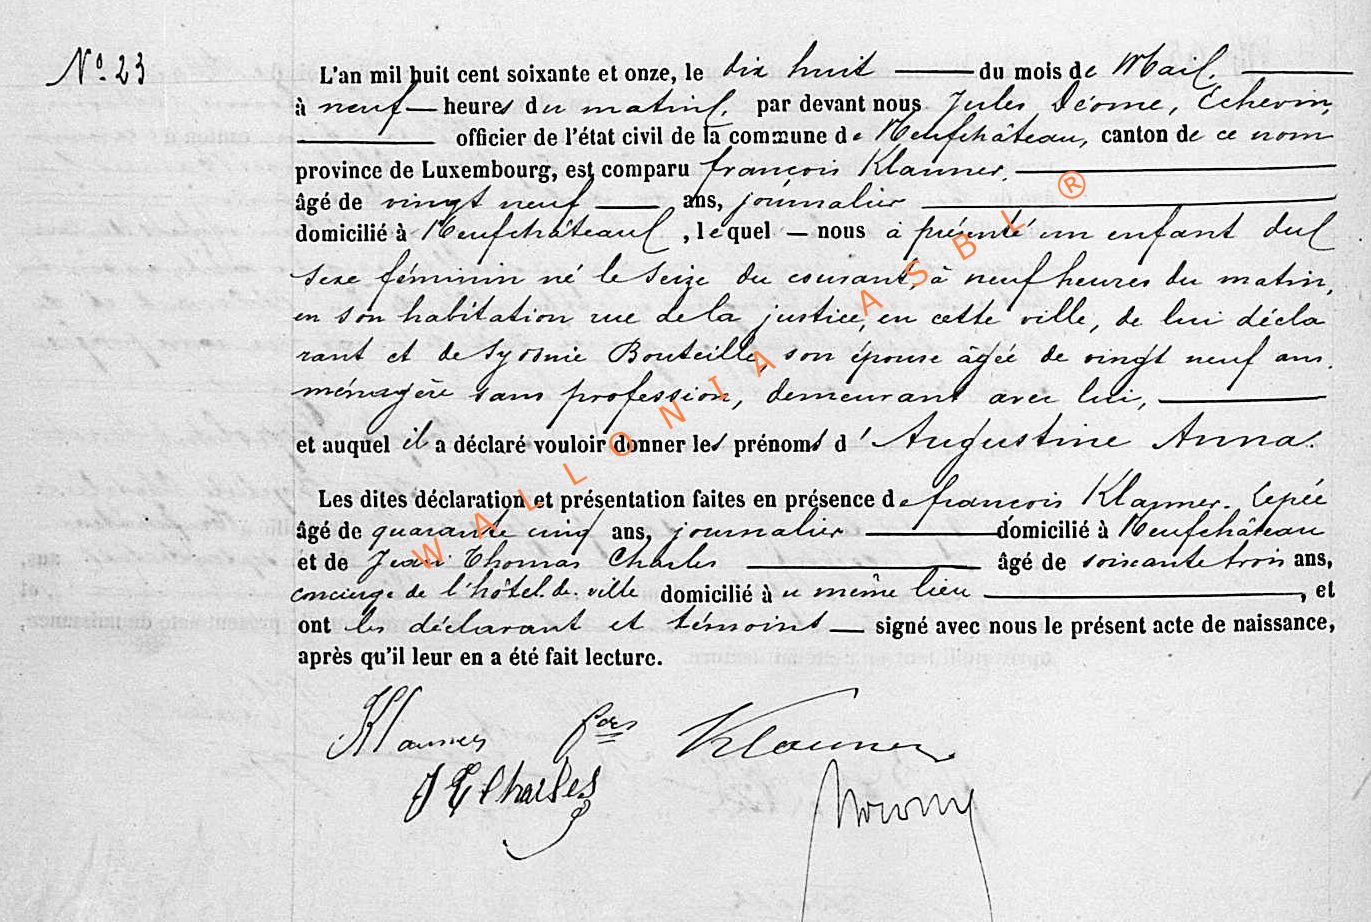 N° 23
L'an mil huit cent soixante et onze, le dix huit du mois de Mai,
à neuf heures du matin, par devant nous Jules Déome, Echevin,
officier de l'état civil de la commune de Neufchâteau, canton de ce nom
province de Luxembourg, est comparu françois Klauner,
âgé de vingt neuf ans, journalier
domicilié à Neufchâteau, lequel nous a présenté un enfant du
sexe féminin né le seize du courant, à neuf heures du matin,
en son habitation rue de la justice, en cette ville, de lui décla
rant et de Sydonie Bouteille, son épouse âgée de vingt neuf ans
ménagère sans profession, demeurant avec lui,
et auquel il a déclaré vouloir donner les prénoms d'Augustine Anna.
Les dites déclaration et présentation faites en présence de françois Klauner
âgé de quarante cinq ans, journalier domicilié à Neufchâteau
et de Jean Thomas Charles âgé de soixante trois ans,
concierge de l'hôtel de ville domicilié à u même lieu, et
ont les déclarant et témoins signé avec nous le présent acte de naissance,
après qu'il leur en a été fait lecture.
Klauner fçois Klauner
J T Charles
WALLONIA ASBL ®